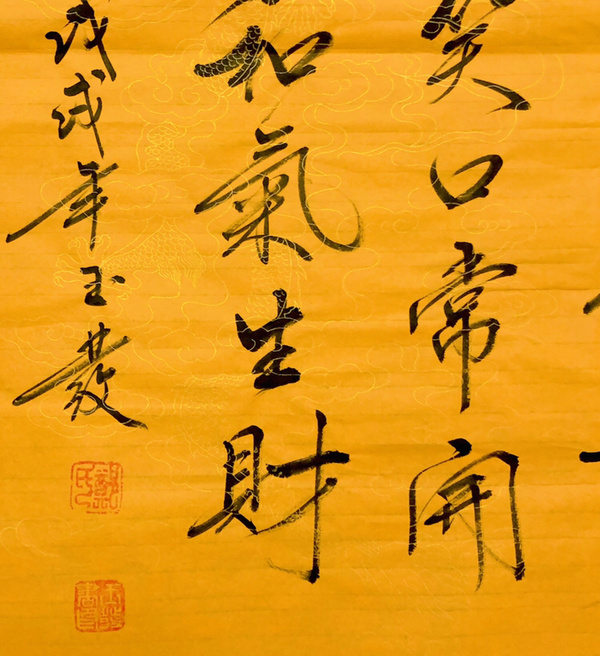 笑口常開
和氣生財
戊戌年玉發